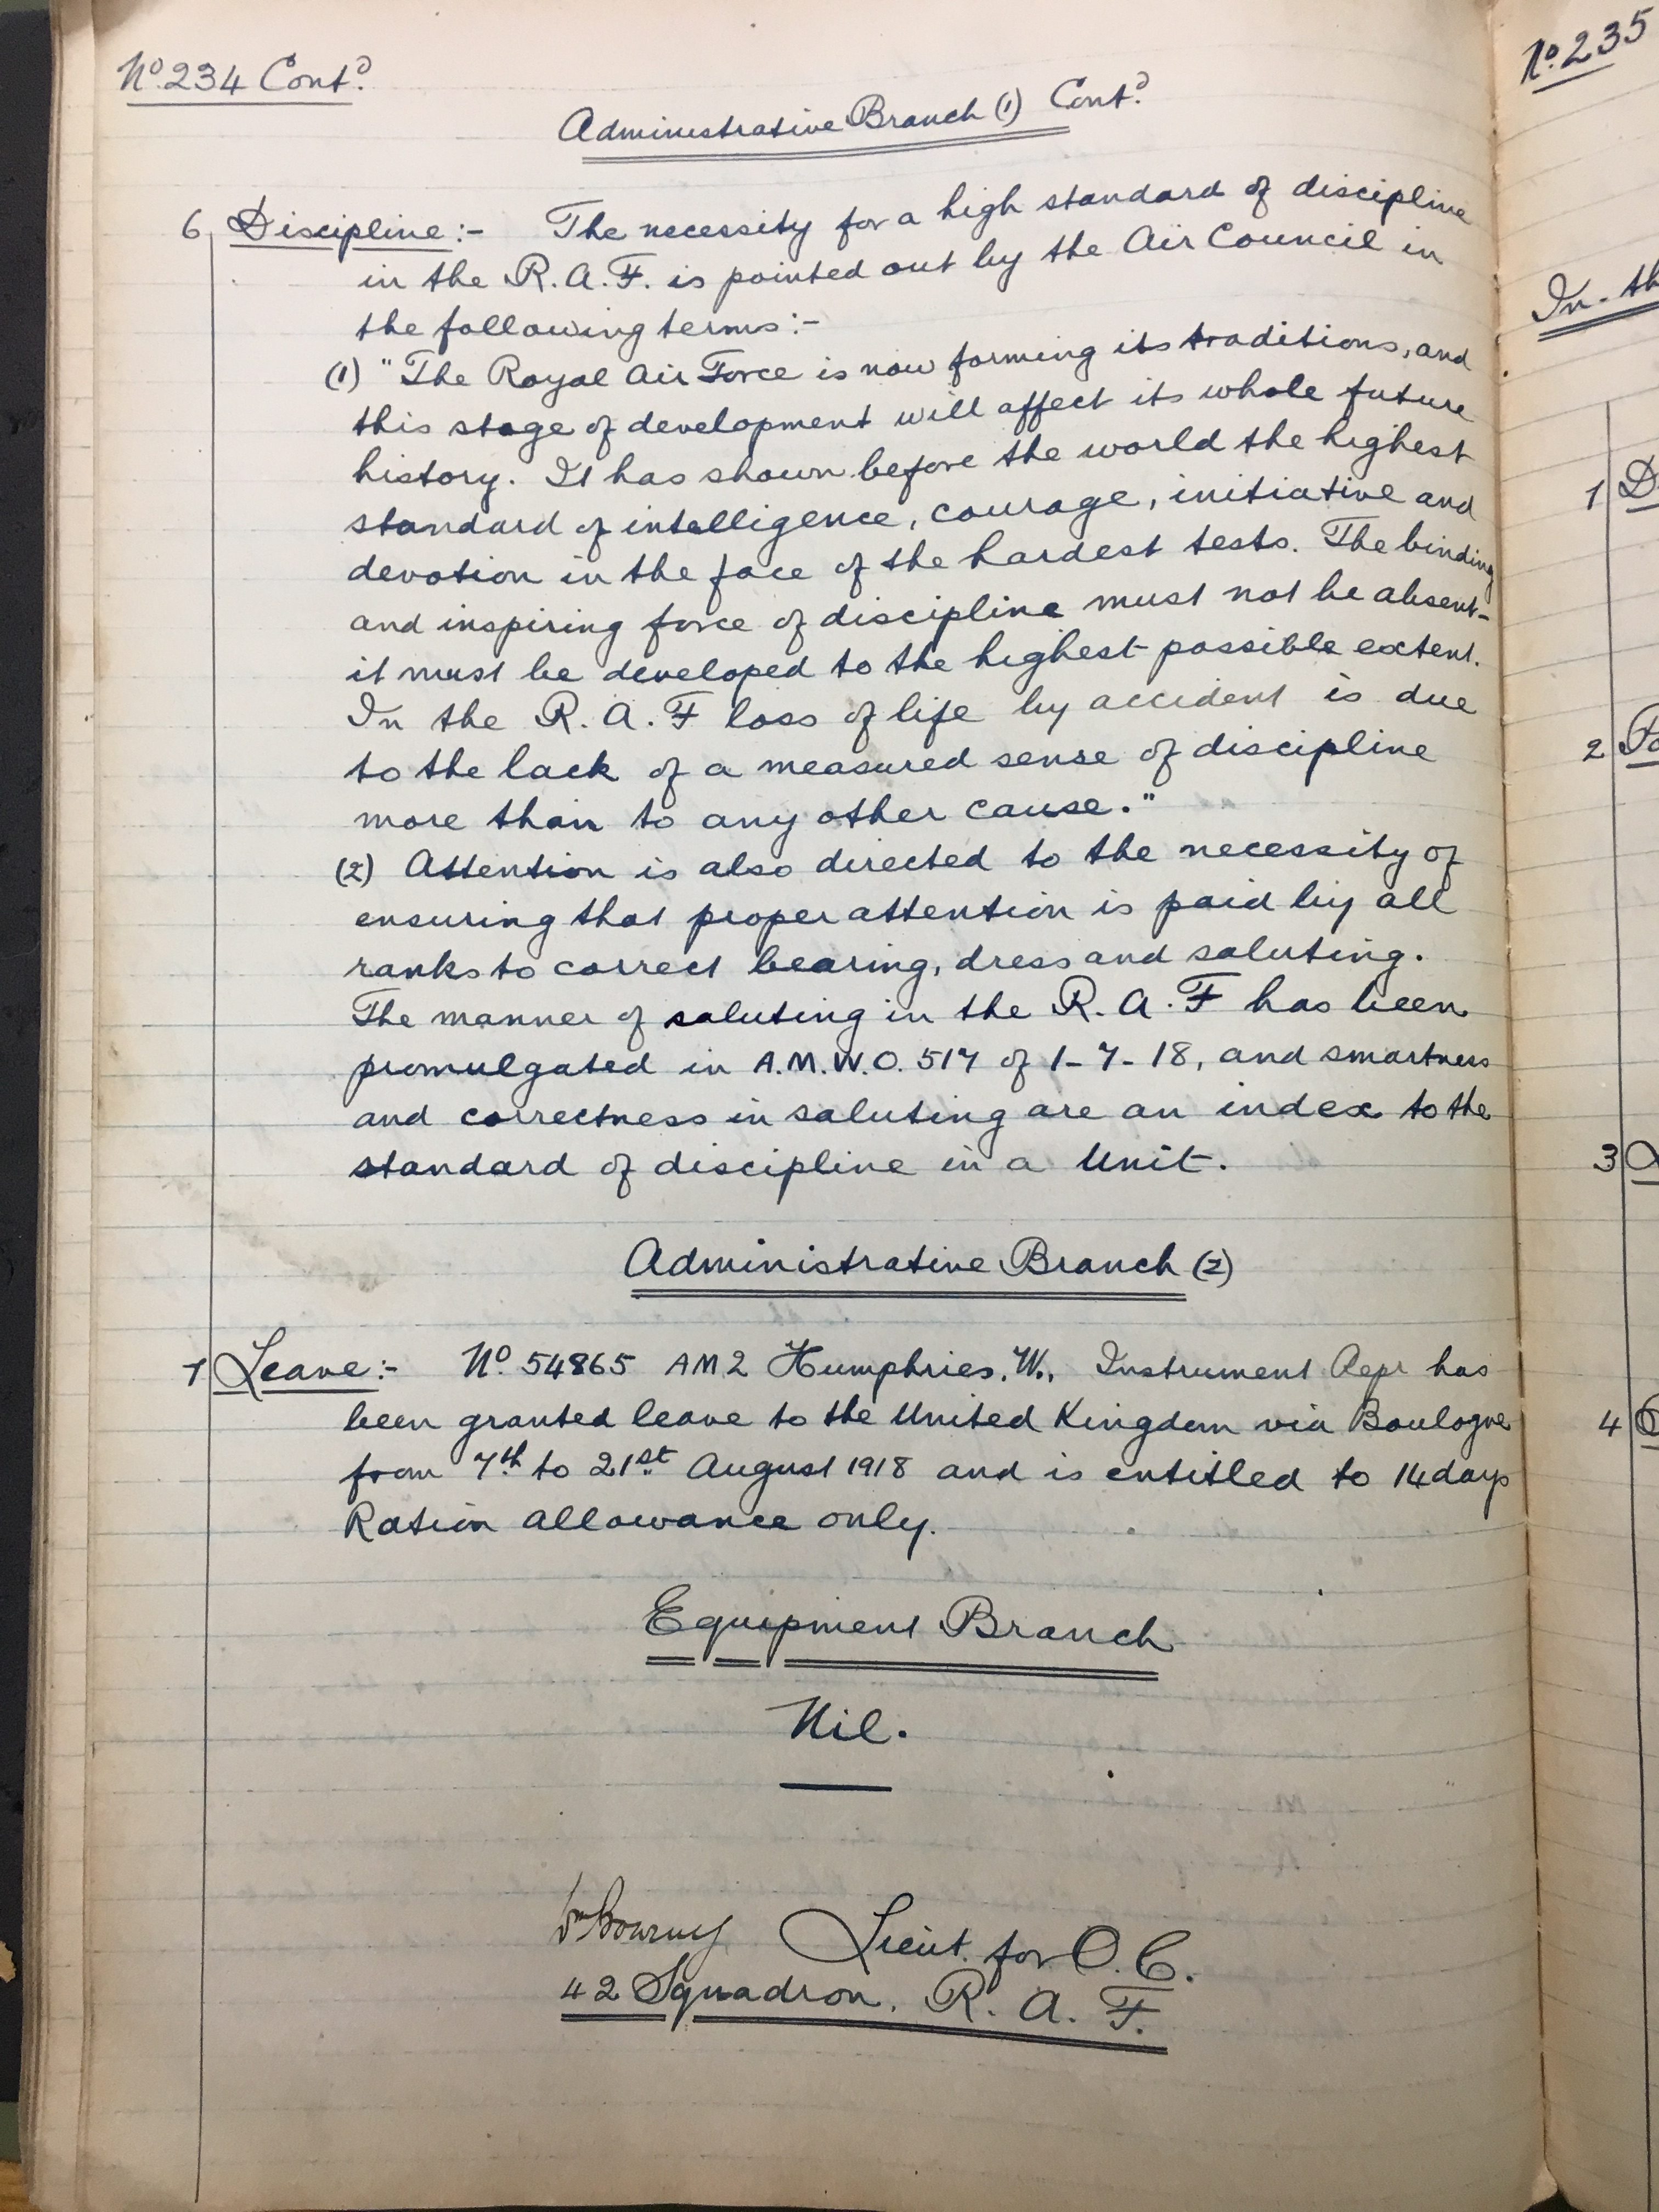 No. 234 Contd
Administrative Branch (1) Contd
6 Discipline:- The necessity for a high standard of discipline
in the R.A.F. is pointed out by the Air Council in
the following terms:-
(1) "The Royal Air Force is now forming its traditions, and
this stage of development will affect its whole future
history. It has shown before the world the highest
standard of intelligence, courage, initiative and
devotion in the face of the hardest tests. The binding
and inspiring force of discipline must not be absent-
it must be developed to the highest possible extent.
In the R.A.F loss of life by accident is due
to the lack of a measured sense of discipline
more than to any other cause."
(2) Attention is also directed to the necessity of
ensuring that proper attention is paid by all
ranks to correct bearing, dress and saluting.
The manner of saluting in the R.A.F has been
promulgated in A.M.W.O. 517 of 1-7-18, and smartness
and correctness in saluting are an index to the
standard of discipline in a Unit.
Administrative Branch (2)
7 Leave:- No. 54865 AM2 Humphries. W., Instrument Repr has
been granted leave to the United Kingdom via Boulogne
from 7th to 21st August 1918 and is entitled to 14 days
Ration allowance only.
Equipment Branch
Nil.
Lieut. for O.C.
42 Squadron. R.A.F.
No. 235
In. th
1 D
2 Pa
3
4